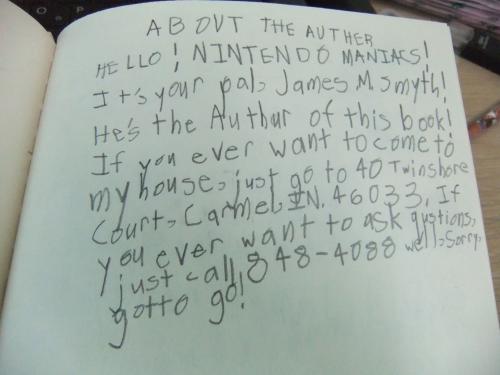 ABOUT THE AUTHER
HELLO! NINTENDO MANIACS!
It's your pal, James M. Smyth!
He's the Authur of this book!
If you ever want to come to
my house, just go to 40 Twinshore
Court, Carmel, IN. 46033. If
you ever want to ask qustions,
just call 848-4088 well, Sorry,
gotto go!